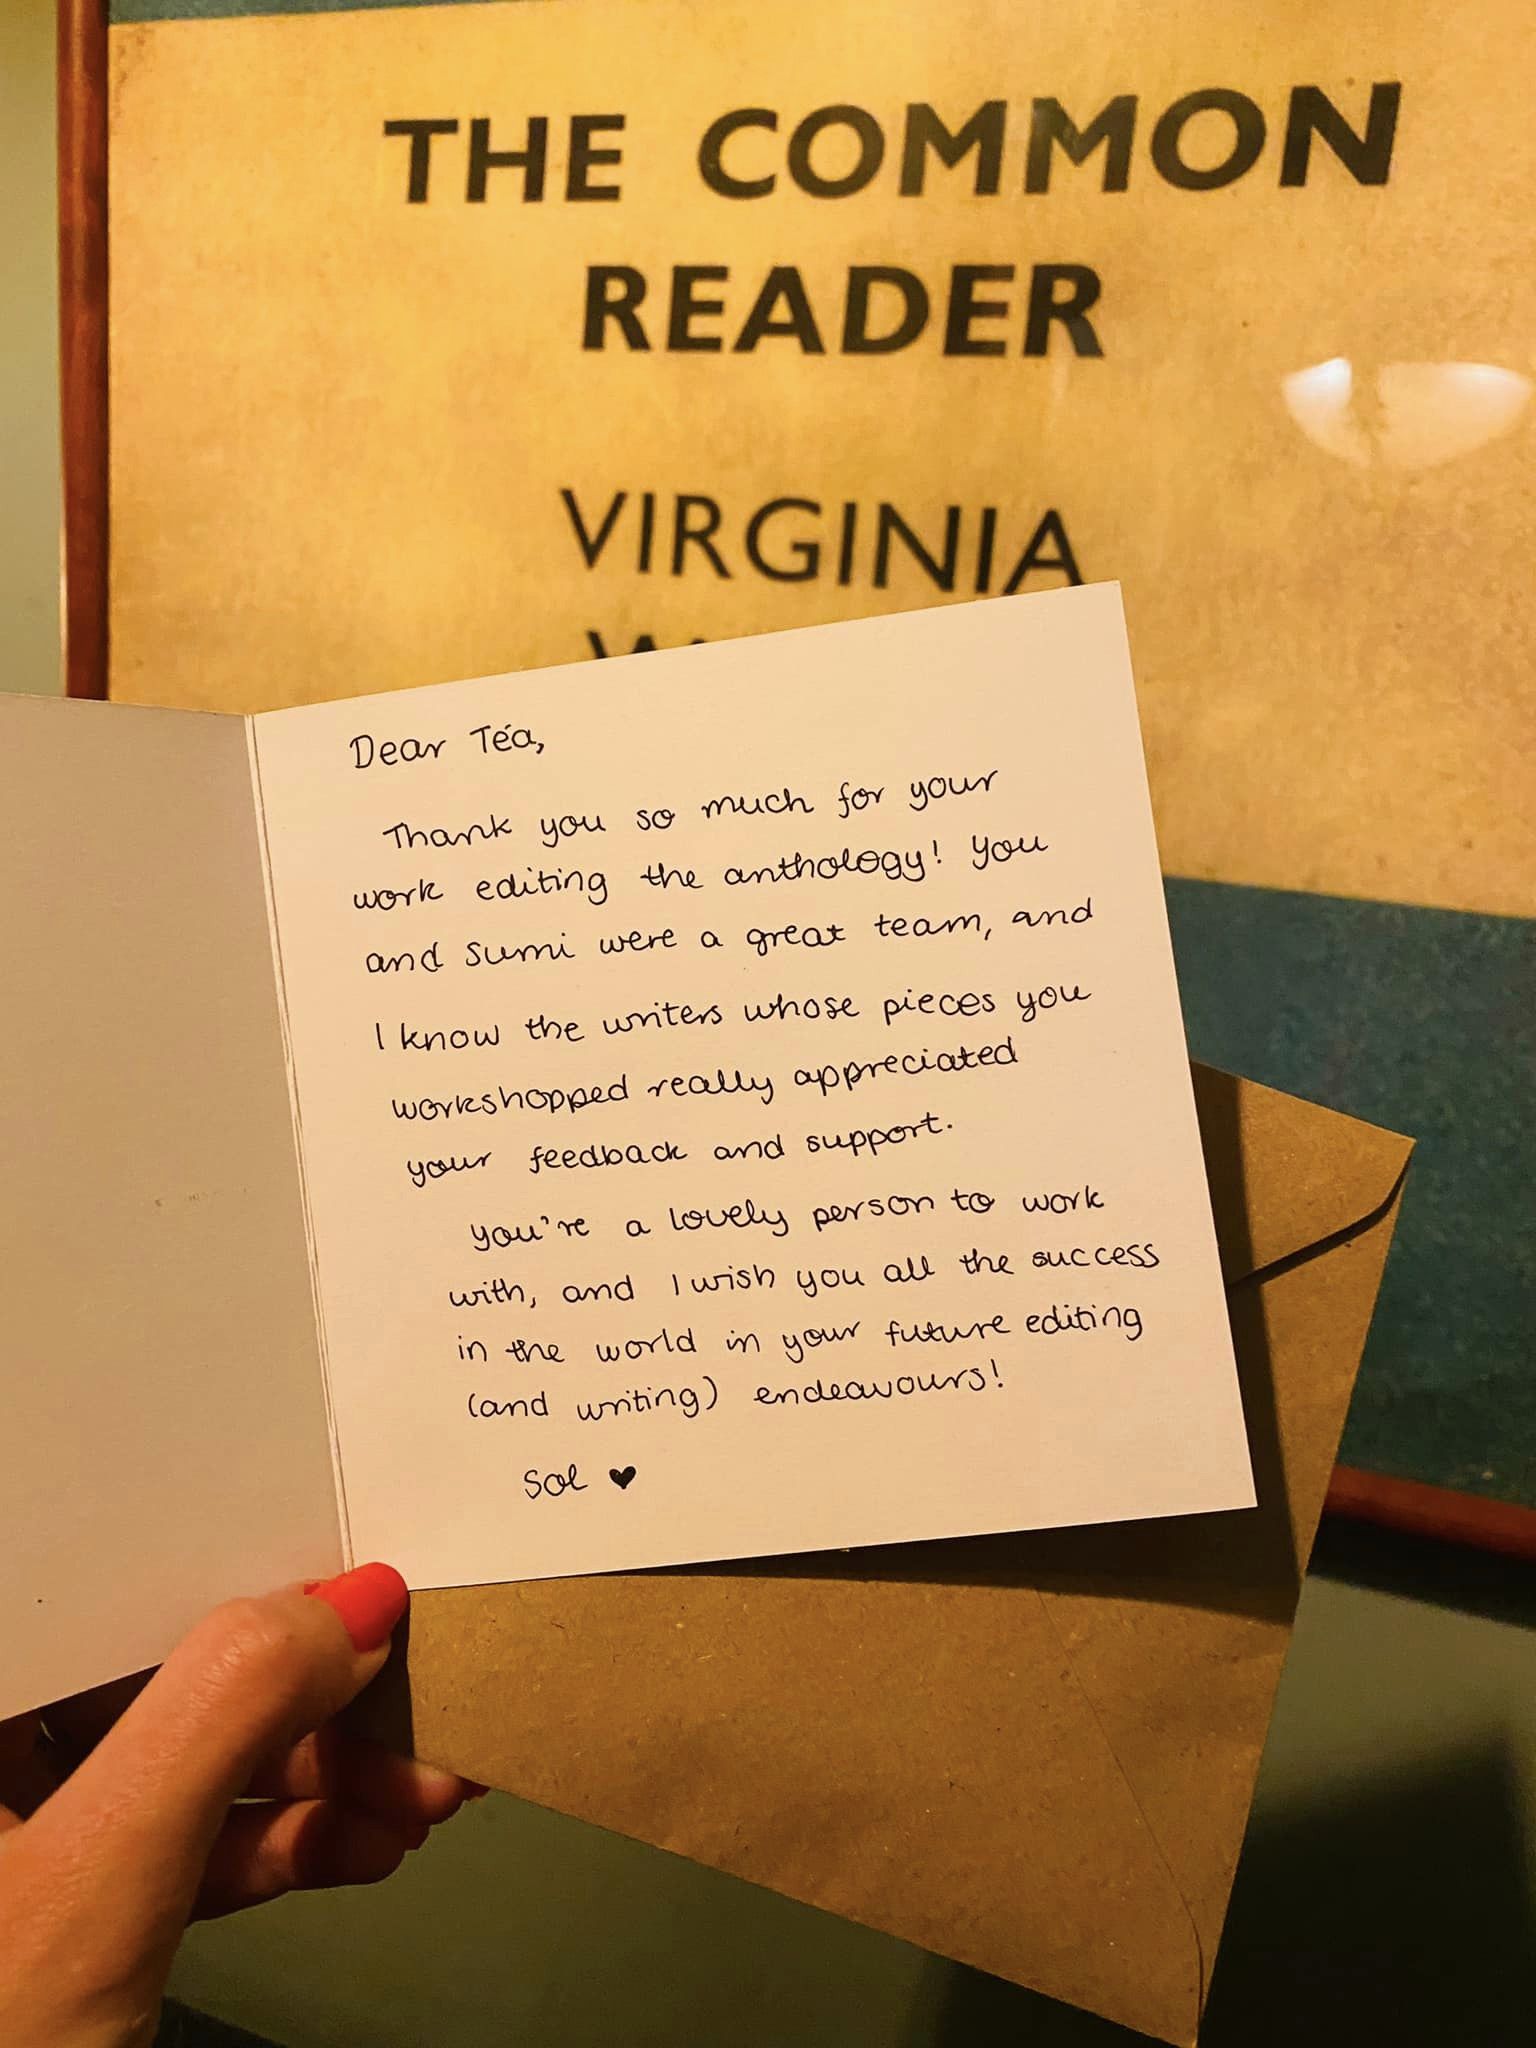 THE COMMON
READER
VIRGINIA
Dear Téa,
Thank you so much for your
work editing the anthology! You
and Sumi were a great team, and
I know the writers whose pieces you
workshopped really appreciated
your feedback and support.
You're a lovely person to work
with, and I wish you all the success
in the world in your future editing
(and writing) endeavours!
Sol ♥